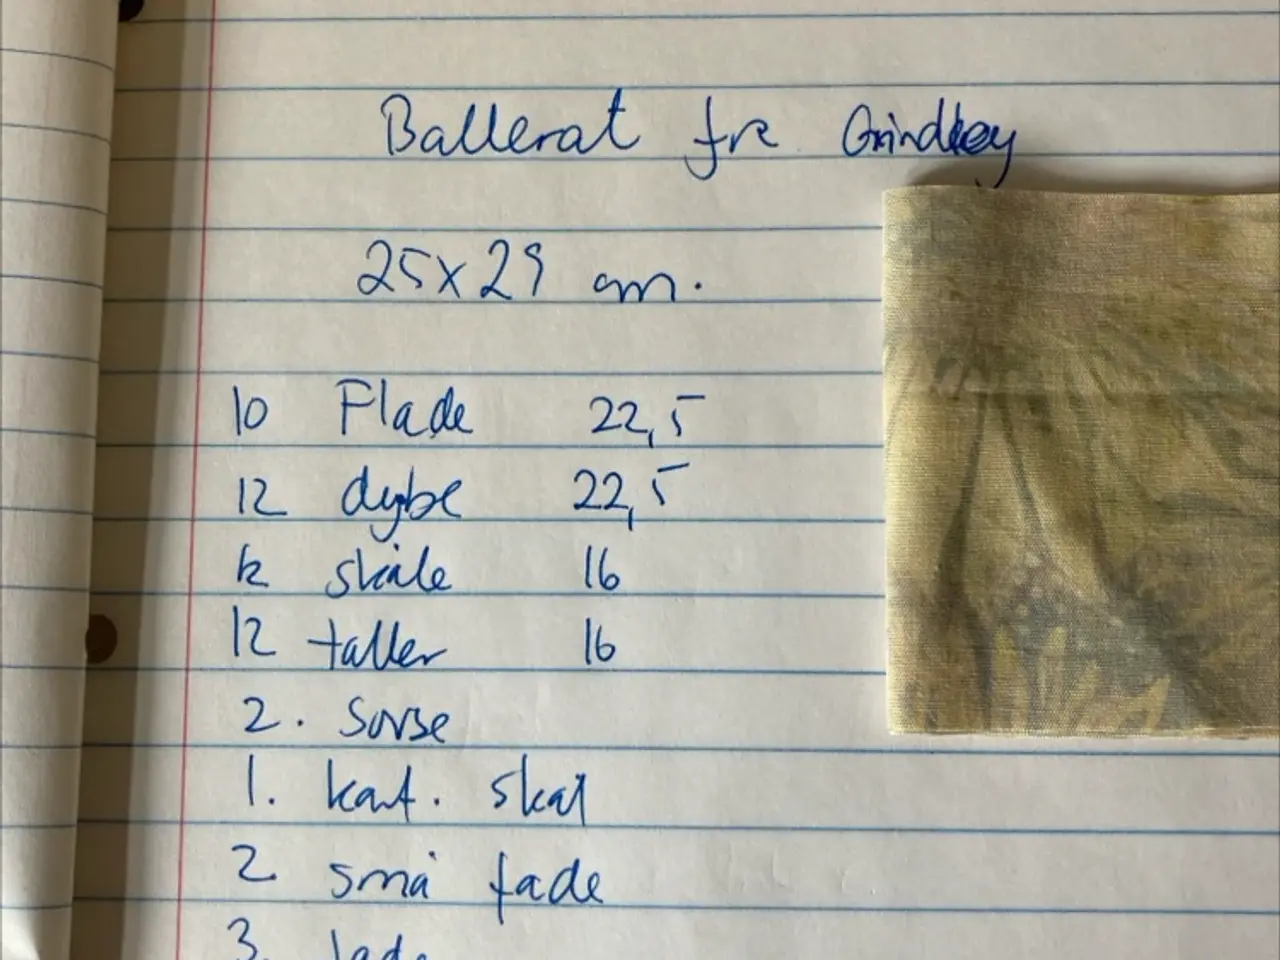 Ballerat fra
25x29 cm.
10 Flade 22,5
12 dybe 22,5
12 skåle 16
12 taller 16
2. Sovse
1. kat. skål
2 små fade
3